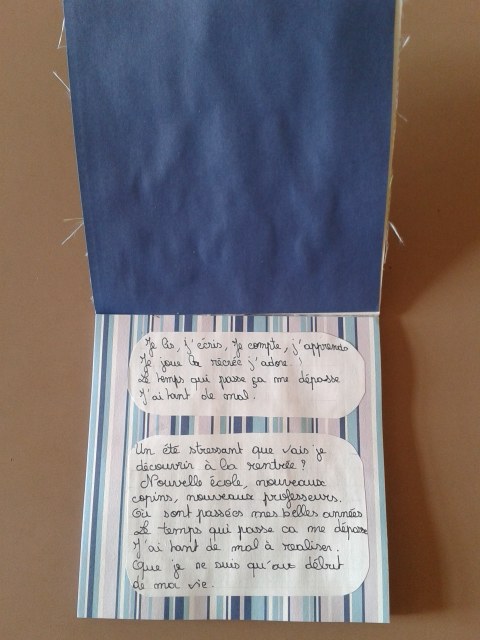 Je lis, j'écris, Je compte, j'apprends
Je joue la récrée j'adore !
Le temps qui passe ça me dépasse
J'ai tant de mal.
Un été stressant que vais je
découvrir à la rentrée ?
Nouvelle école, nouveaux
copins, nouveaux professeurs.
Où sont passées mes belles années
Le temps qui passe ca me dépasse
J'ai tant de mal à realiser.
Que je ne suis qu'au début
de ma vie.